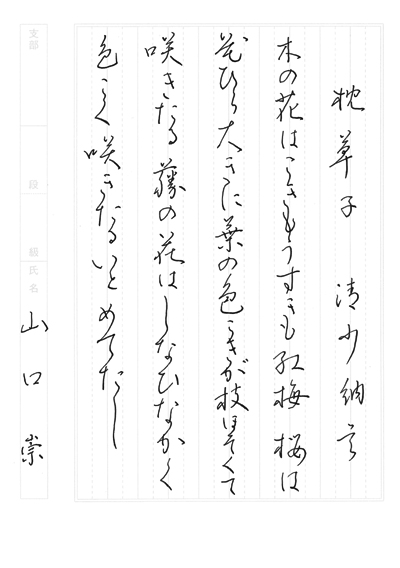 枕草子 清少納言
木の花はこきもうすきも紅梅 桜は
花びら大きに葉の色こきが枝ほそくて
咲きたる藤の花はしなひなかく
色こく咲きたるいとめでたし
支部
段
級
氏名
山口崇